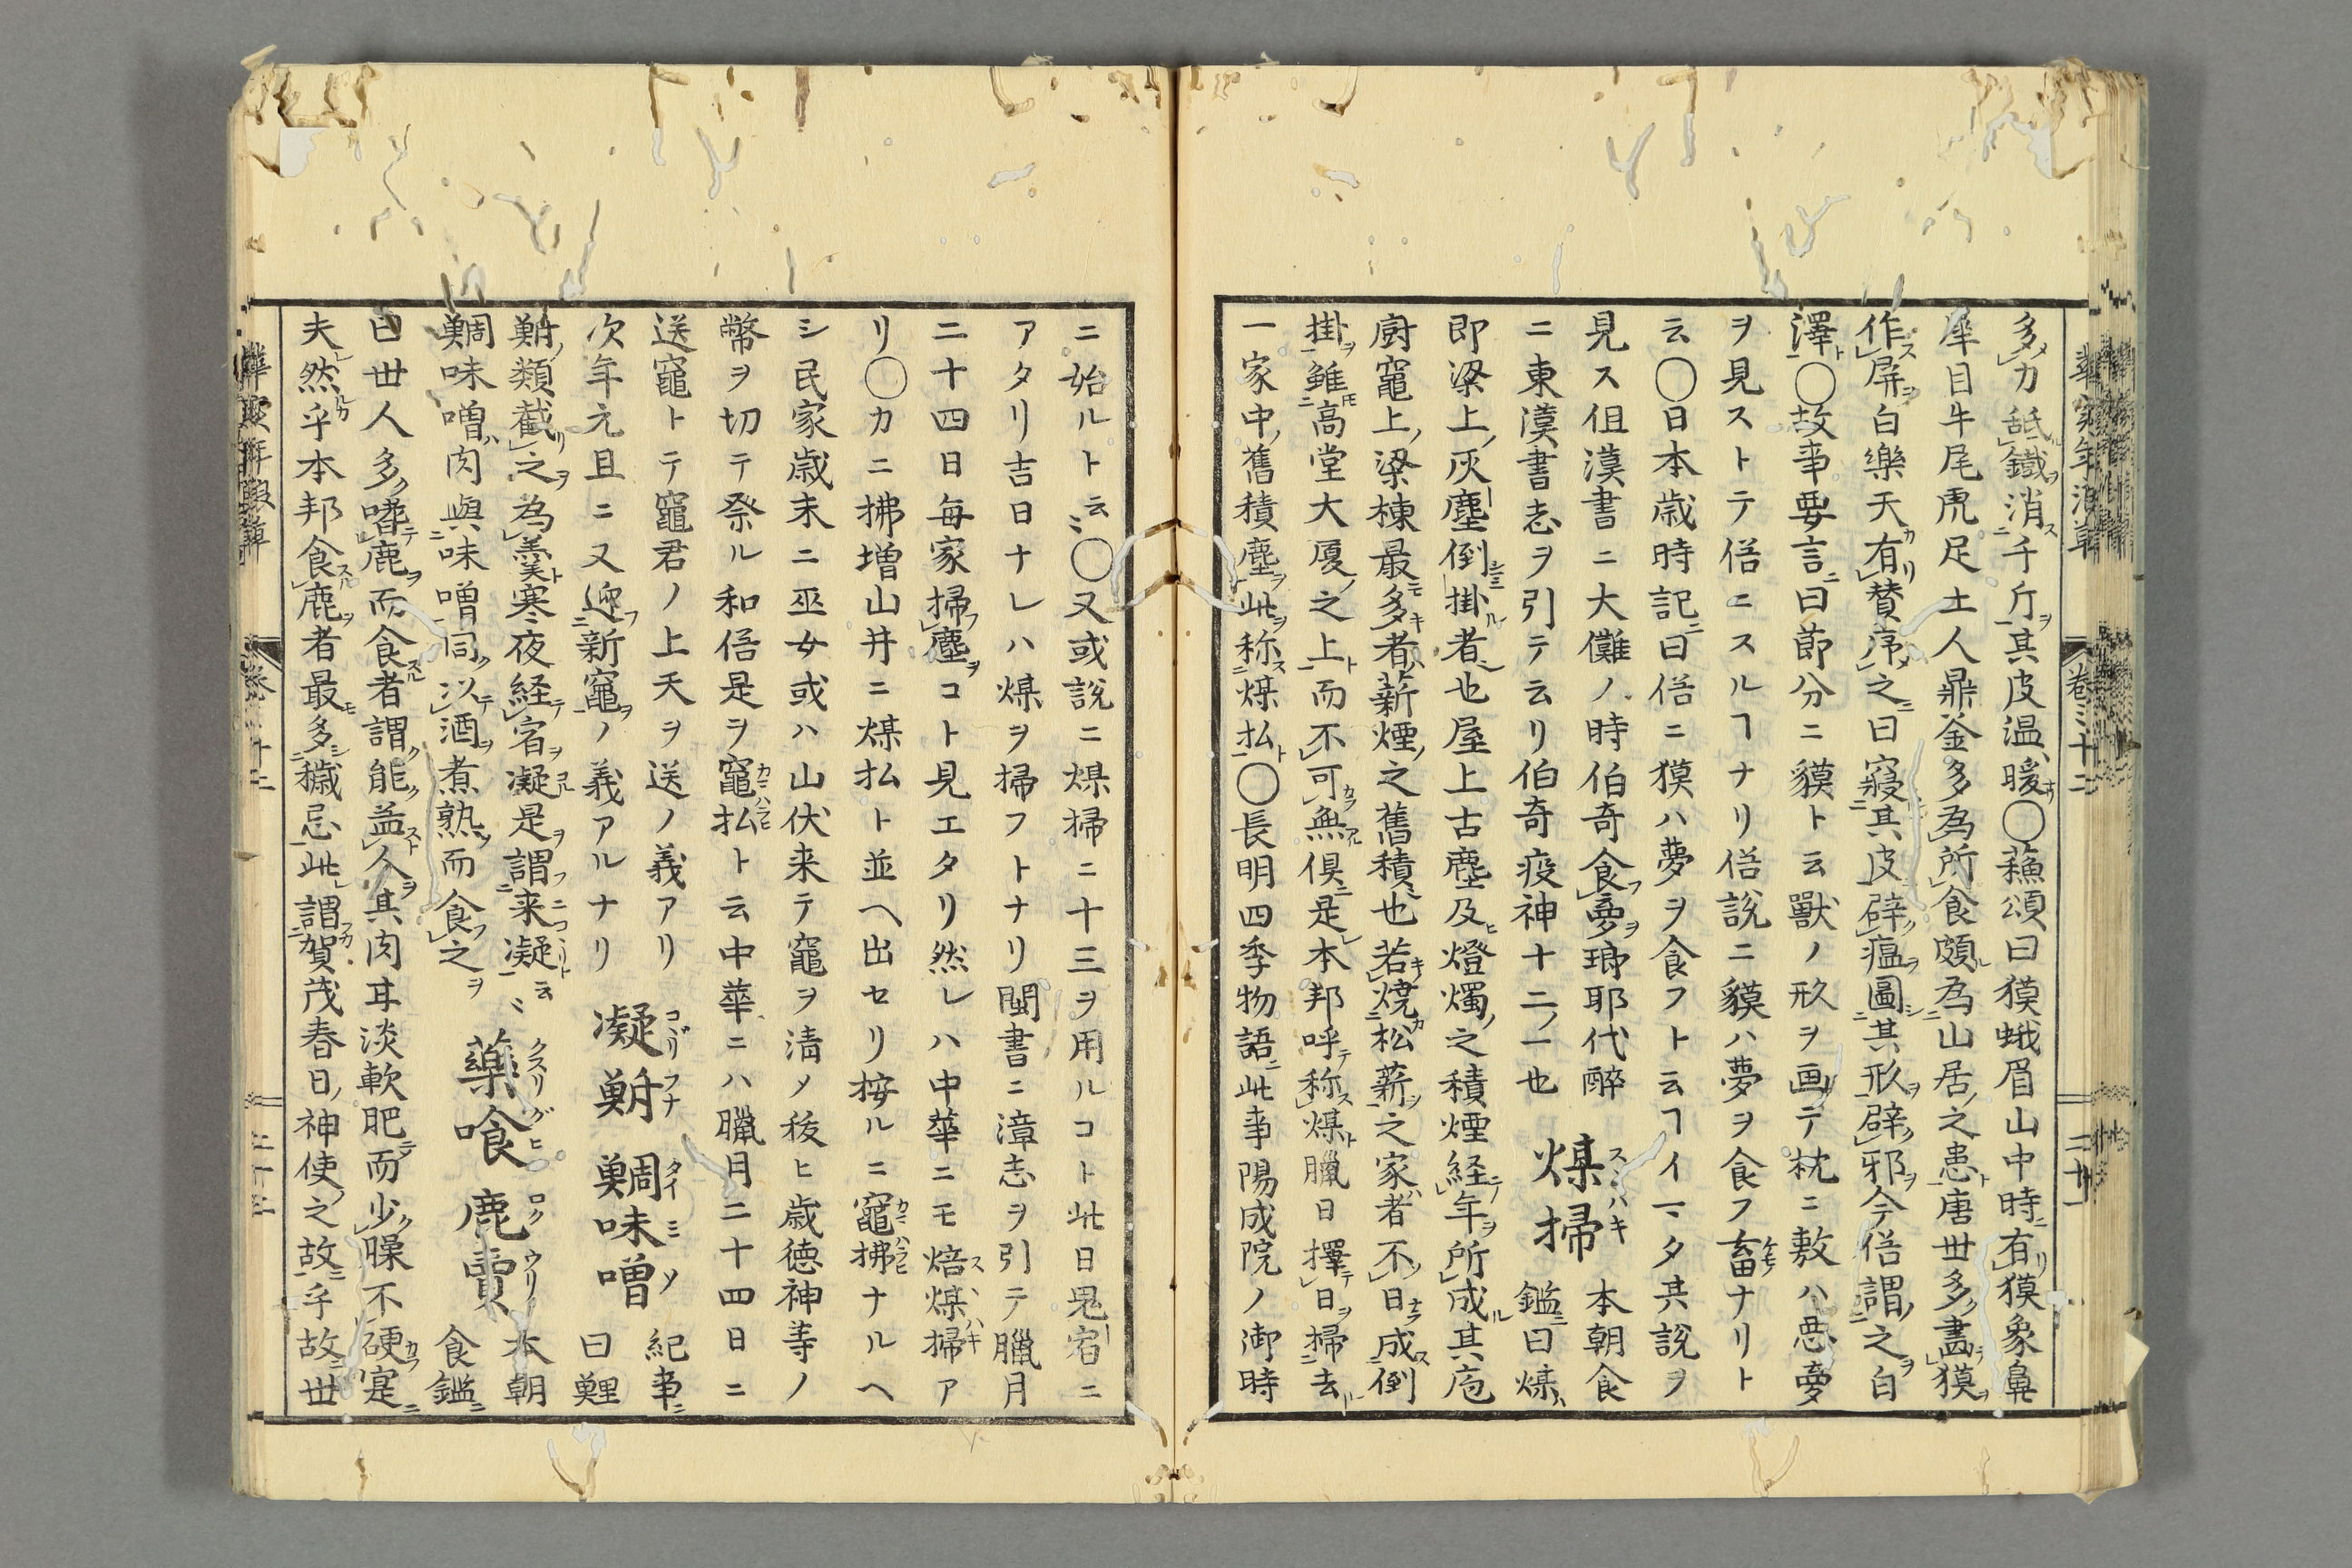 多力舐鐵消千斤其皮温暖〇蘓頌曰獏蛾眉山中時有獏象鼻
犀目牛尾虎足土人鼎釜多為所食頗為山居之患唐丗多畵獏
作屏白樂天有賛序之曰寢其皮辟瘟圖其形辟邪今俗謂之白
澤〇故事要言曰節分ニ貘ト云獸ノ形ヲ画テ枕ニ敷ハ惡夢
ヲ見ストテ俗ニスルヿナリ俗説ニ貘ハ夢ヲ食フ畜ナリト
云〇日本歳時記曰俗ニ獏ハ夢ヲ食フト云ヿイマタ其説ヲ
見ス但漢書ニ大儺ノ時伯奇食夢瑯耶代醉
ニ東漢書志ヲ引テ云リ伯奇疫神十二ノ一也
煤掃 本朝食
鑑曰煤
即梁上灰塵倒掛者也屋上古塵及燈燭之積煙経年所成其庖
厨竈上梁棟最多者薪煙之舊積也若焼松薪之家者不日成倒
掛雖高堂大厦之上而不可無俱是本邦呼称煤臘日擇日掃去
一家中舊積塵此称煤払〇長明四季物語此事陽成院ノ御時
華實年浪草 卷三十二 二十一
ニ始ルト云〻〇又或説ニ煤掃ニ十三ヲ用ルコト此日鬼宿ニ
アタリ吉日ナレハ煤ヲ掃フトナリ閩書ニ漳志ヲ引テ臘月
二十四日毎家掃塵コト見エタリ然レハ中華ニモ煤掃ア
リ〇カニ拂増山井ニ煤払ト並ヘ出セリ按ルニ竈拂ナルヘ
シ民家歳末ニ巫女或ハ山伏来テ竈ヲ清メ祓ヒ歳徳神等ノ
幣ヲ切テ祭ル和俗是ヲ竈払ト云中華ニハ臘月二十四日ニ
送竈トテ竈君ノ上天ヲ送ノ義アリ
次年元旦ニ又迎新竈ノ義アルナリ
凝鮒 鯛味噌 紀事
曰鯉
鮒類截之為羹寒夜経宿凝是謂来凝云〻
鯛味噌肉與味噌同以酒煮熟而食之
藥喰 鹿賣 本朝
食鑑
曰丗人多噃鹿而食者謂能益人其肉甘淡軟肥而少臊不硬寔
夫然乎本邦食鹿者最多穢忌此謂賀茂春日神使之故乎故丗